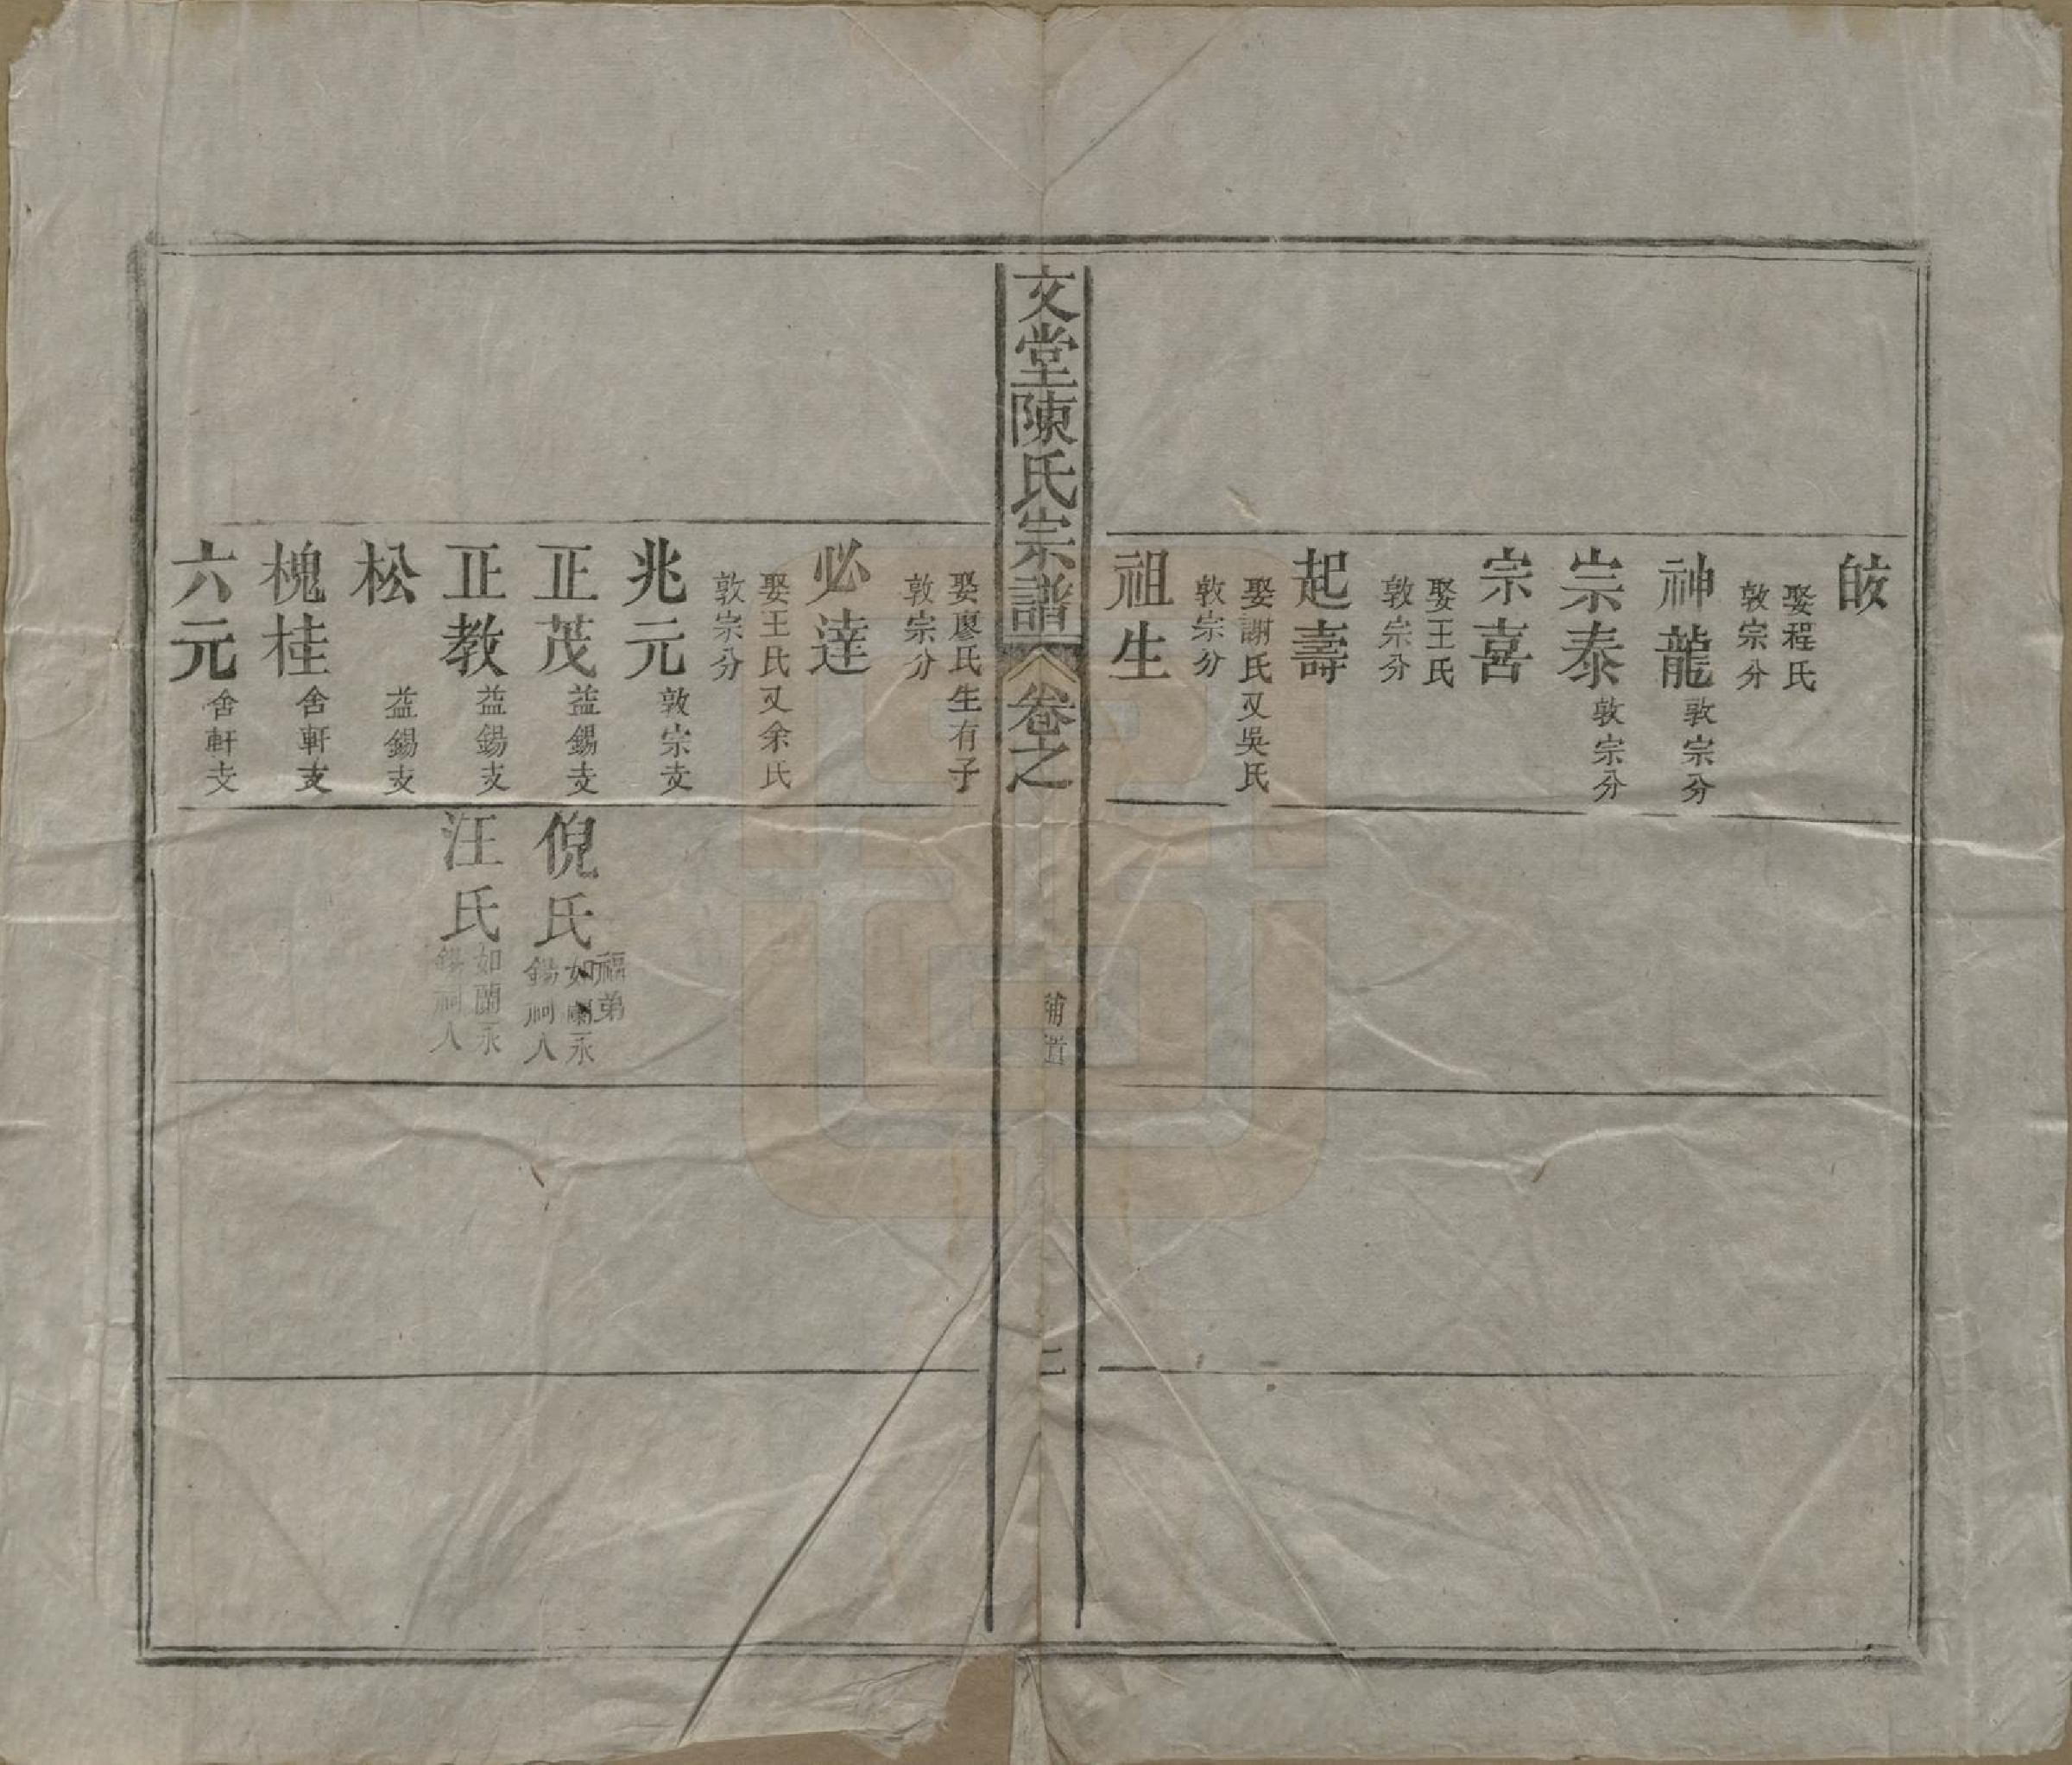 皎
娶程氏
敦宗分
神龍敦宗分
崇泰敦宗分
宗喜
娶王氏
敦宗分
起壽
娶謝氏又吳氏
敦宗分
祖生
文堂陳氏宗譜
卷之
補遺
二
娶廖氏生有子
敦宗分
必達
娶王氏又余氏
敦宗分
兆元敦宗支
正茂益錫支
倪氏
福弟
如蘭永
錫祠入
正教益錫支
汪氏
如蘭永
錫祠入
松益錫支
槐桂舍軒支
六元舍軒支